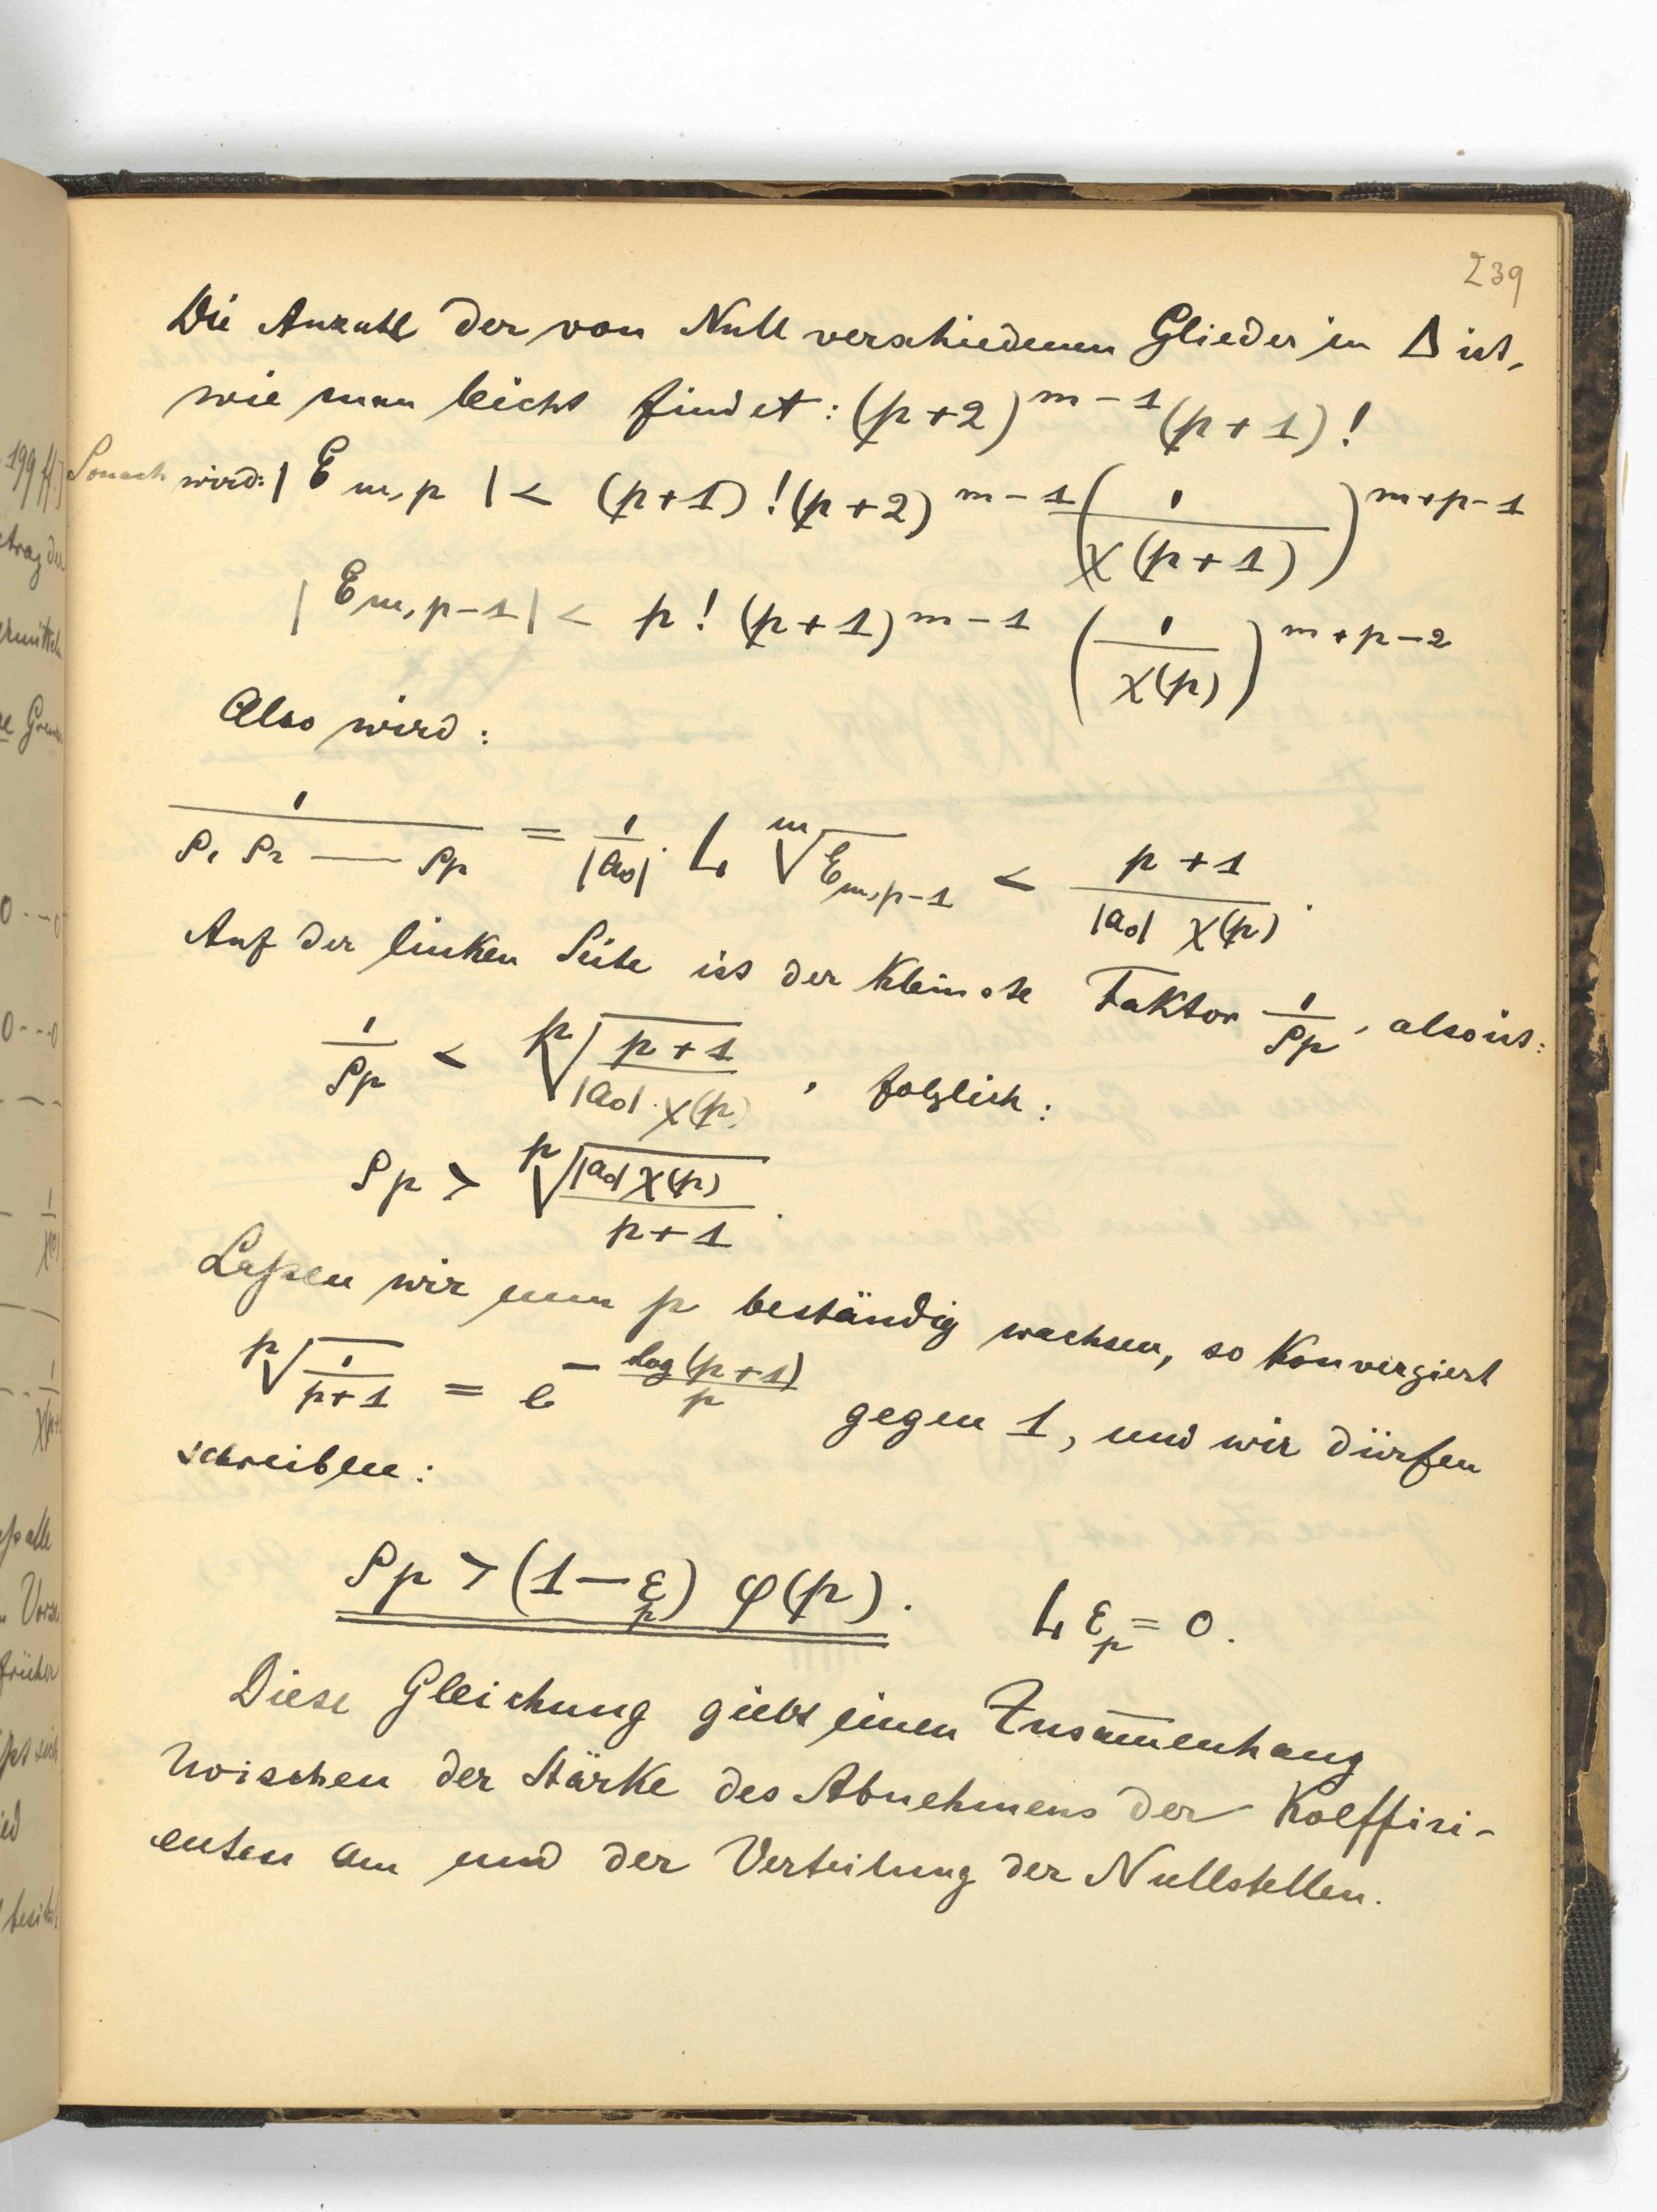 239
Die Anzahl der von Null verschiedenen Glieder in Δ ist,
wie man leicht findet: (p+2)^{m-1} (p+1)!
Sonach wird: |E_{m,p}| < (p+1)! (p+2)^{m-1} (1/χ(p+1))^{m+p-1}
|E_{m,p-1}| < p! (p+1)^{m-1} (1/χ(p))^{m+p-2}
Also wird:
1/(ρ₁ ρ₂ — ρ_p) = 1/|a₀| · L \sqrt[m]{E_{m,p-1}} < (p+1)/(|a₀| χ(p)).
Auf der linken Seite ist der kleinste Faktor 1/ρ_p, also ist:
1/ρ_p < \sqrt[p]{(p+1)/(|a₀| · χ(p))}, folglich:
ρ_p > \sqrt[p]{|a₀| χ(p)/(p+1)}.
Laßen wir nun p beständig wachsen, so konvergiert
\sqrt[p]{1/(p+1)} = e^{- log(p+1)/p} gegen 1, und wir dürfen
schreiben:
ρ_p > (1 - ε_p) φ(p). L ε_p = 0.
Diese Gleichung giebt einen Zusam̅enhang
zwischen der Stärke des Abnehmens der Koeffizi-
enten a_m und der Verteilung der Nullstellen.
199 ff.]